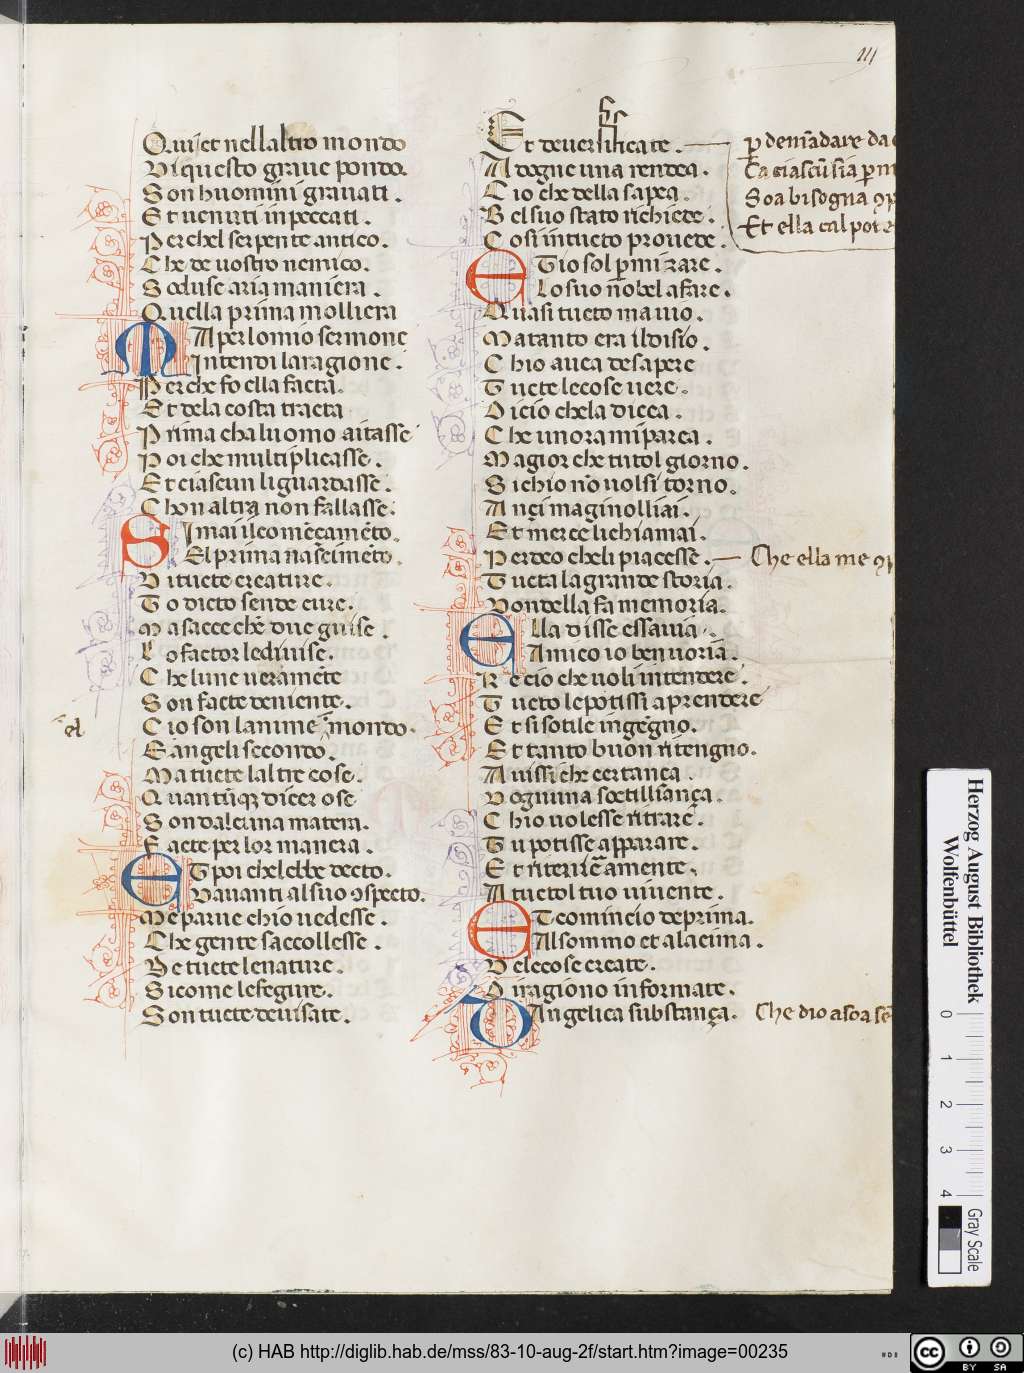 111
Qui et nellaltro mondo
Di questo graue pondo.
Son huomini grauati.
Et uenuti in peccati.
Perchel serpente antico.
Che de uostro nemico.
Seduse aria maniera.
Quella prima molliera
Ma per lo mio sermone
Intendi la ragione.
Perche fo ella facta.
Et dela costa tracta
Prima cha luomo aitasse
Poi che multiplicasse.
Et ciascun li guardasse.
Chon altra non fallasse.
Simai il comēcamēto.
El prima nascimēto.
Di tucte creature.
To dicto sende cure.
Ma sacce chē due guise.
Lo factor le diuise.
Che lune ueramēte
Son facte deniente.
Cio son lanime ēl mondo.
el
E angeli secondo.
Ma tucte laltre cose.
Quantūqꝫ dicer ose
Son dalcuna matera.
Facte per lor manera.
Et poi chelebbe decto.
Dauanti al suo ꝯspecto.
Me parue chio uedesse.
Che gente saccollesse.
De tucte le nature.
Sicome le segure.
Son tucte deuisate.
Et deuersificate.
ꝑ demādare da
Ca ciascū sia ꝑ
Soa bisogna ꝯp
Et ella cal pote
Ad ogne una rendea.
Cio che della sapea.
Del suo stato richiede.
Cosi in tucto prouede.
Et io sol ꝑ mirare.
Lo suo nobel afare.
Quasi tucto mauio.
Ma tanto era il disio.
Chio auea de sapere
Tucte le cose uere.
Di cio chela dicea.
Che unora mi parea.
Magior che tutol giorno.
Sichio no uolsi torno.
Anci maginolliai.
Et merce li chiamai.
Per deo cheli piacesse.
Che ella me ꝯp
Tucta la grande storia.
Dondella fa memoria.
Ella disse essauia.
Amico io ben uoria.
Re cio che uoli intendere.
Tucto le potissi aprendere
Et si sotile ingegno.
Et tanto buon ritengno.
Auissi che certanca.
Dognuna soctillianca.
Chio uolesse ritrare.
Tu potisse apparare.
Et riteriremente.
A tuctol tuo uiuente.
Et comincio de prima.
Al sommo et ala cima.
Delecose create.
Di ragiono informate.
Dangelica substança.
Che dio a soa se
Herzog August Bibliothek
Wolfenbüttel
0 1 2 3 4
Gray Scale
(c) HAB http://diglib.hab.de/mss/83-10-aug-2f/start.htm?image=00235
cc BY SA